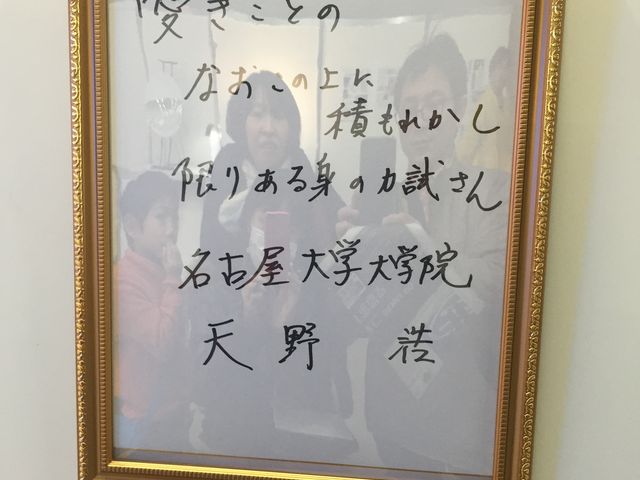 憂きことの
なおこの上に
積もれかし
限りある身の力試さん
名古屋大学大学院
天野 浩